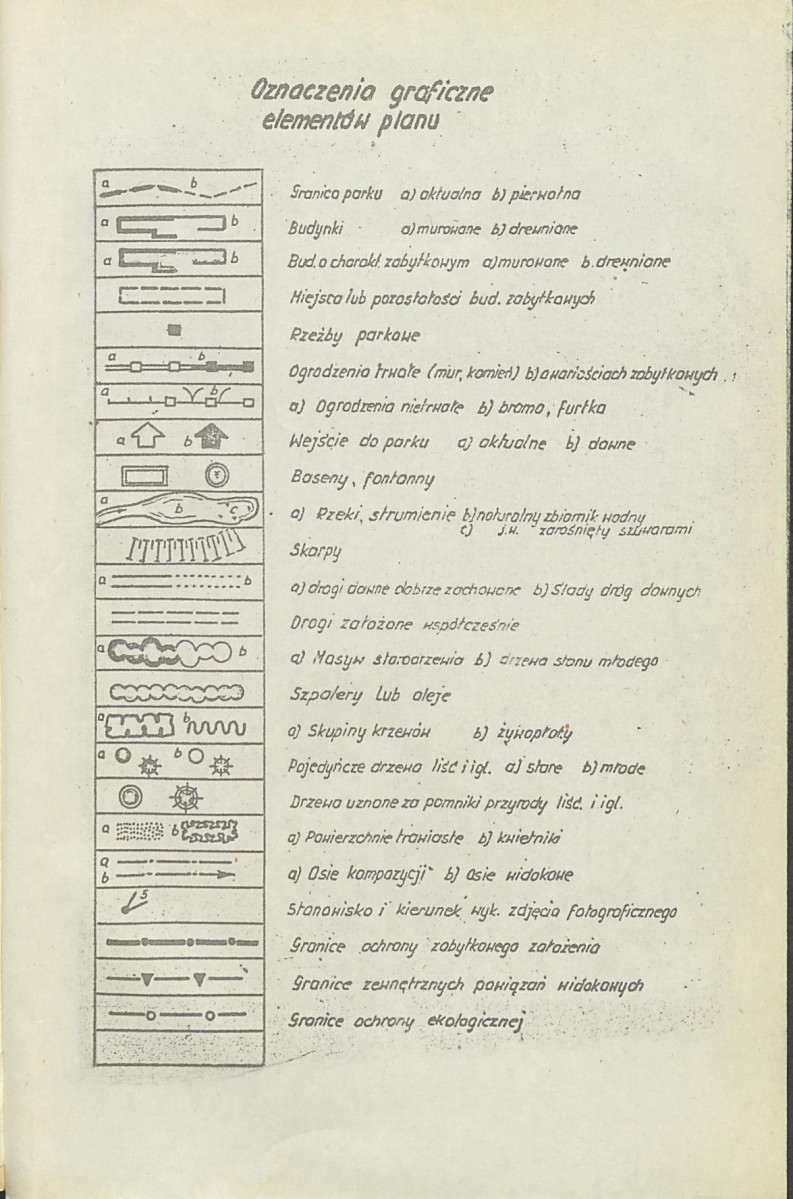 Oznaczenia graficzne
elementów planu
a b Granica parku a) aktualna b) pierwotna
a b Budynki a) murowane b) drewniane
a b Bud. o charakt. zabytkowym a) murowane b. drewniane
Miejsca lub pozostałości bud. zabytkowych
Rzeźby parkowe
a b Ogrodzenia trwałe (mur, kamień) b) o wartościach zabytkowych
a b a) Ogrodzenia nietrwałe b) brama, furtka
a b Wejście do parku a) aktualne b) dawne
Baseny, fontanny
a b c a) Rzeki, strumienie b) naturalny zbiornik wodny
c) j.w. zarośnięty szuwarami
Skarpy
a b a) drogi dawne dobrze zachowane b) Ślady dróg dawnych
Drogi założone współcześnie
a b a) Masyw starodrzewia b) drzewa stanu młodego
Szpalery lub aleje
a b a) Skupiny krzewów b) żywopłoty
a b Pojedyńcze drzewa liść i igl. a) stare b) młode
Drzewa uznane za pomniki przyrody liść. i igl.
a b a) Powierzchnie trawiaste b) kwietniki
a b a) Osie kompozycji b) Osie widokowe
5 Stanowisko i kierunek wyk. zdjęcia fotograficznego
Granice ochrony zabytkowego założenia
Granice zewnętrznych powiązań widokowych
Granice ochrony ekologicznej